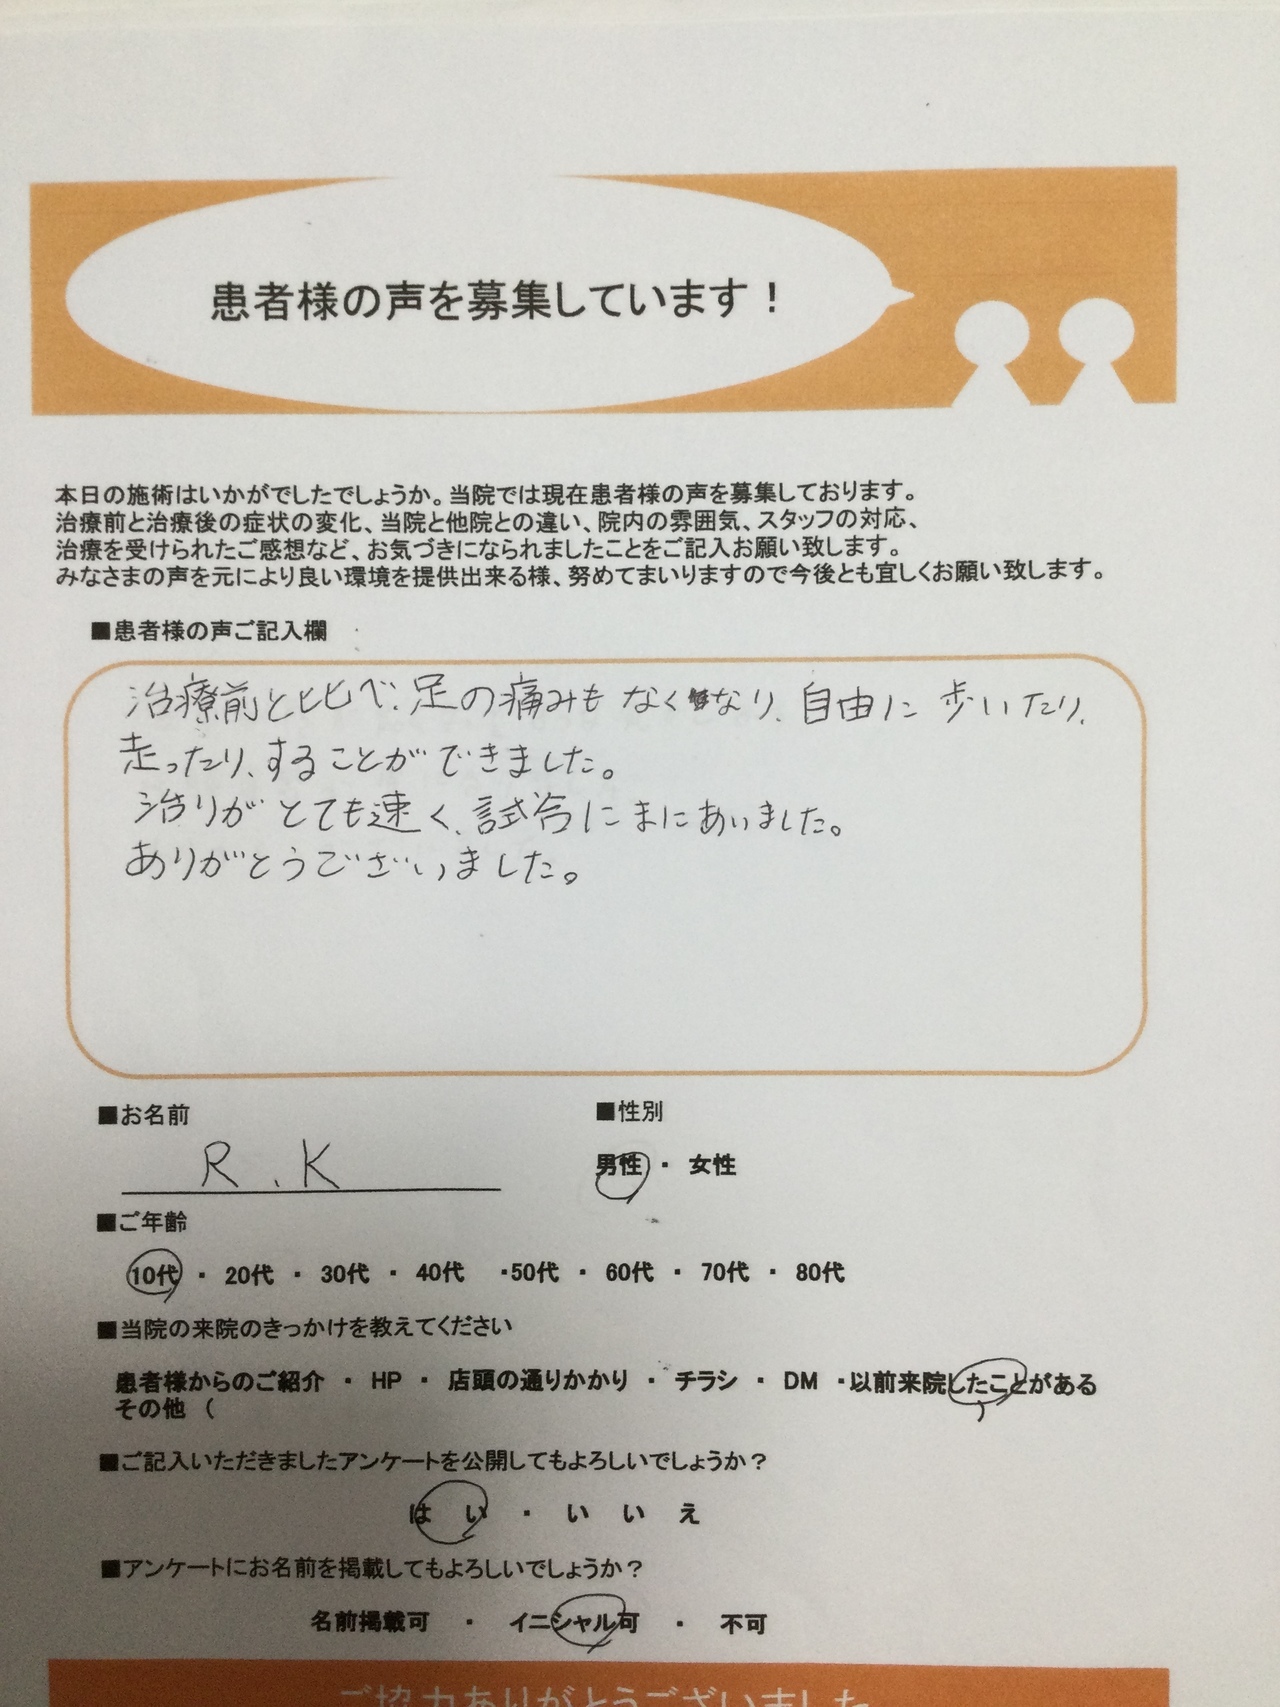 患者様の声を募集しています！
本日の施術はいかがでしたでしょうか。当院では現在患者様の声を募集しております。
治療前と治療後の症状の変化、当院と他院との違い、院内の雰囲気、スタッフの対応、
治療を受けられたご感想など、お気づきになられましたことをご記入お願い致します。
みなさまの声を元により良い環境を提供出来る様、努めてまいりますので今後とも宜しくお願い致します。
■患者様の声ご記入欄
治療前と比べ、足の痛みもなくなり、自由に歩いたり、
走ったり、することができました。
治りがとても速く、試合にまにあいました。
ありがとうございました。
■お名前 ■性別
R.K 男性 ・ 女性
■ご年齢
10代 ・ 20代 ・ 30代 ・ 40代 ・50代 ・ 60代 ・ 70代 ・ 80代
■当院の来院のきっかけを教えてください
患者様からのご紹介 ・ HP ・ 店頭の通りかかり ・ チラシ ・ DM ・以前来院したことがある
その他 （ ）
■ご記入いただきましたアンケートを公開してもよろしいでしょうか？
はい ・ いいえ
■アンケートにお名前を掲載してもよろしいでしょうか？
名前掲載可 ・ イニシャル可 ・ 不可
ご協力ありがとうございました